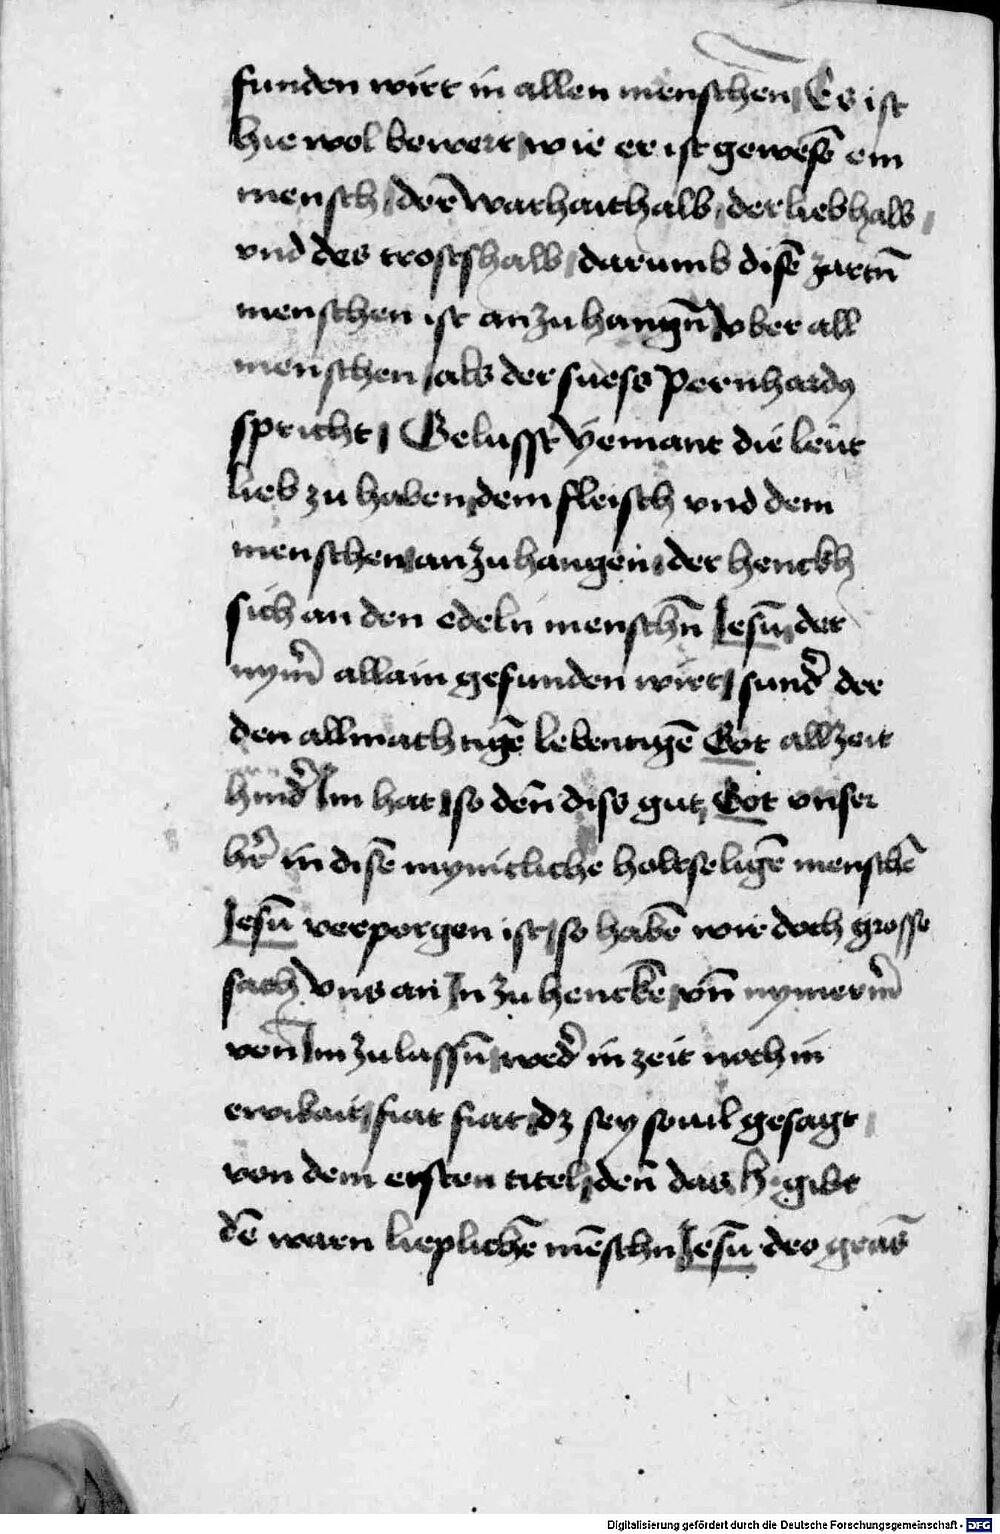 funden wirt in allen menschen / Es ist
hie wol bewert / wie er ist gewesē ein
mensch / der̄ warhaithalb / der liebhalb /
vnd des trostshalb / darumb disē zartn̄
menschen ist anzuhangn̄ / vber all
menschen / als der suess Pernhardꝰ
spricht / Gelusst yemant die leüt
lieb zu haben / dem fleisch vnd dem
menschen anzuhangen / der henckh
sich an den edeln menschn̄ Jesū / der
nym̄ allain gefunden wirt / sund̄ der
den allmachtigē lebentigē Got allzeit
hind̄ Im hat / so den̄ diss gut / Got vnser
hr̄ in disē mynicliche holtseligē menschē
Jesū verporgen ist / so habē wir doch grosse
sach vns an In zu henckē / vn̄ nymerm̄
von Im zu lassn̄ / wed̄ in zeit noch in
ewikait / fiat fiat / dz sey souil gesagt /
von dem ersten titel / den̄ das H· gibt
dē warn lieplichē mēschn Jesū des